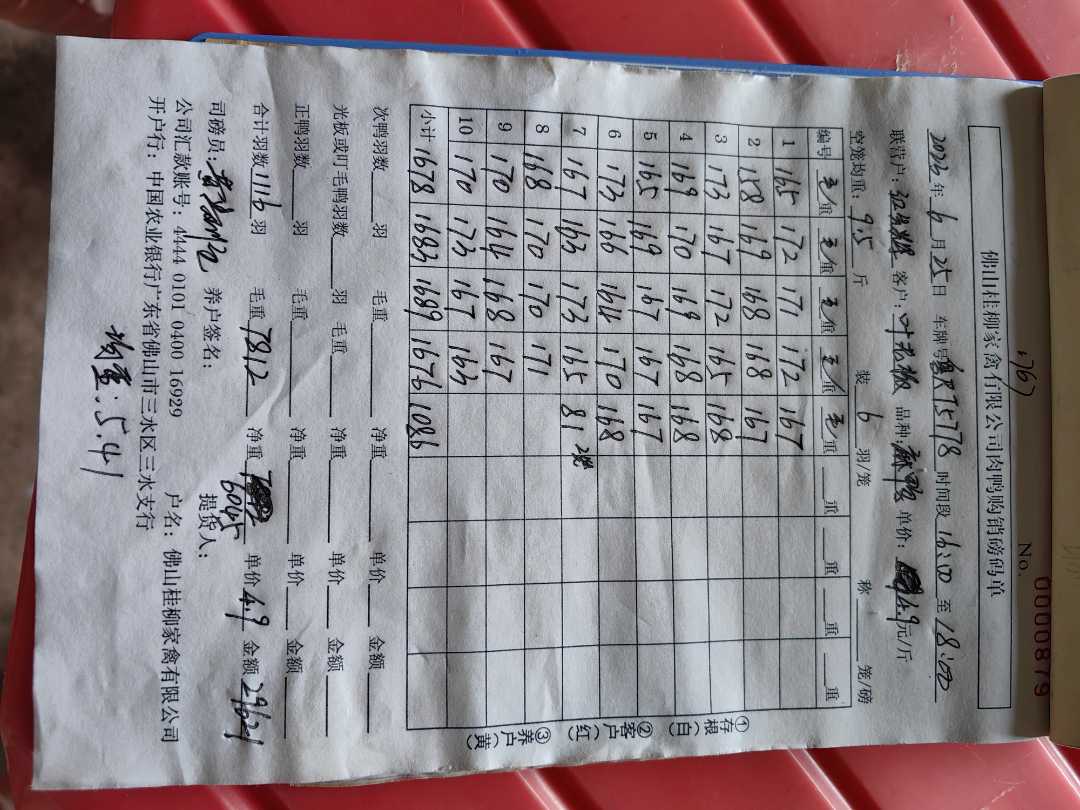 1767
No. 0000879
佛山桂柳家禽有限公司肉鸭购销磅码单
2023年6月25日 车牌号 75778 时间段 16:00 至 18:00
联营户: 客户:叶老板 品种:麻鸭 单价:4.9元/斤
空笼均重:9.5斤 装6羽/笼 称 笼/磅
编号 毛重 毛重 毛重 毛重 毛重 重 重 重 重
1 165 172 171 172 167
2 158 169 168 168 167
3 173 167 172 165 168
4 169 170 169 168 168
5 165 169 167 167 167
6 173 166 164 170 168
7 167 163 173 165 81 2笼
8 168 170 170 171
9 170 164 168 167
10 170 173 167 163
小计 1678 1683 1689 1676 1086
①存根(白) ②客户(红) ③养户(黄)
次鸭羽数 羽 毛重 净重 单价 金额
光板或叮毛鸭羽数 羽 毛重 净重 单价 金额
正鸭羽数 羽 毛重 净重 单价 金额
合计羽数1116羽 毛重7812 净重6045 单价4.9 金额29621
司磅员: 养户签名: 提货人:
公司汇款账号:4444 0101 0400 16929 户名:佛山桂柳家禽有限公司
开户行:中国农业银行广东省佛山市三水区三水支行
均重:5.41